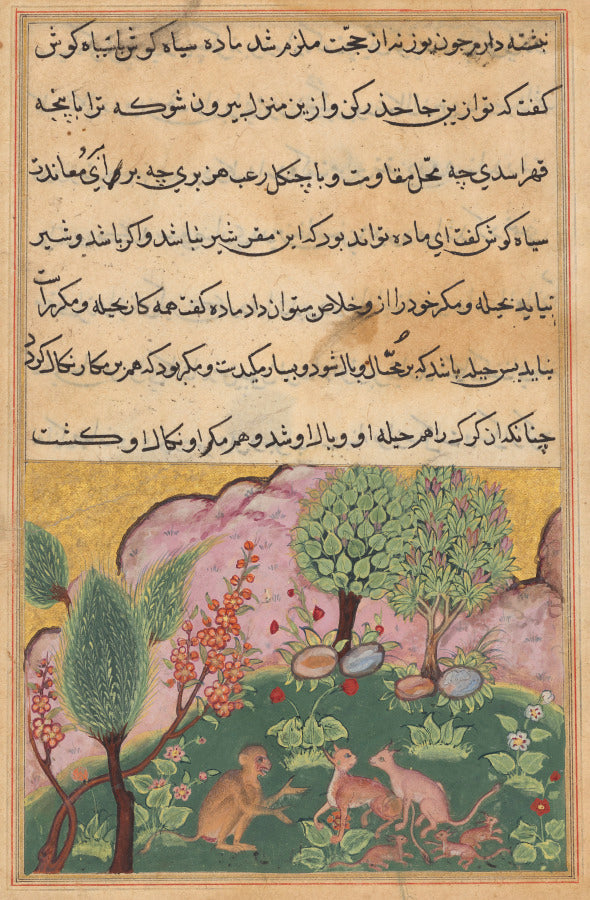 نبشته دارم چون بوزنه از حجّت ملزم شد ماده سیاه کوش با سیاه کوش
کفت که تو ازین جا حذر کن و ازین منزل بیرون شو که ترا با پنجه
قهر اسدي چه محّل مقاوت و با چنکل رعب هزبري چه معاندت
سیاه کوش کفت اي ماده تواند بود که این مقر شیر نباشد و اکر باشد و شیر
بیاید بحیله و مکر خود را از و خلاص میتوان داد ماده کفت همه کار بحیله و مکر راست
نیاید بس حیله باشد که بر محتال وبال شود و بسیار مکیدت و مکر بود که هم بر مکار نکال کردد
چنانکه ان کرک را هم حیله او وبال او شد و هم مکر او نکال او کشت